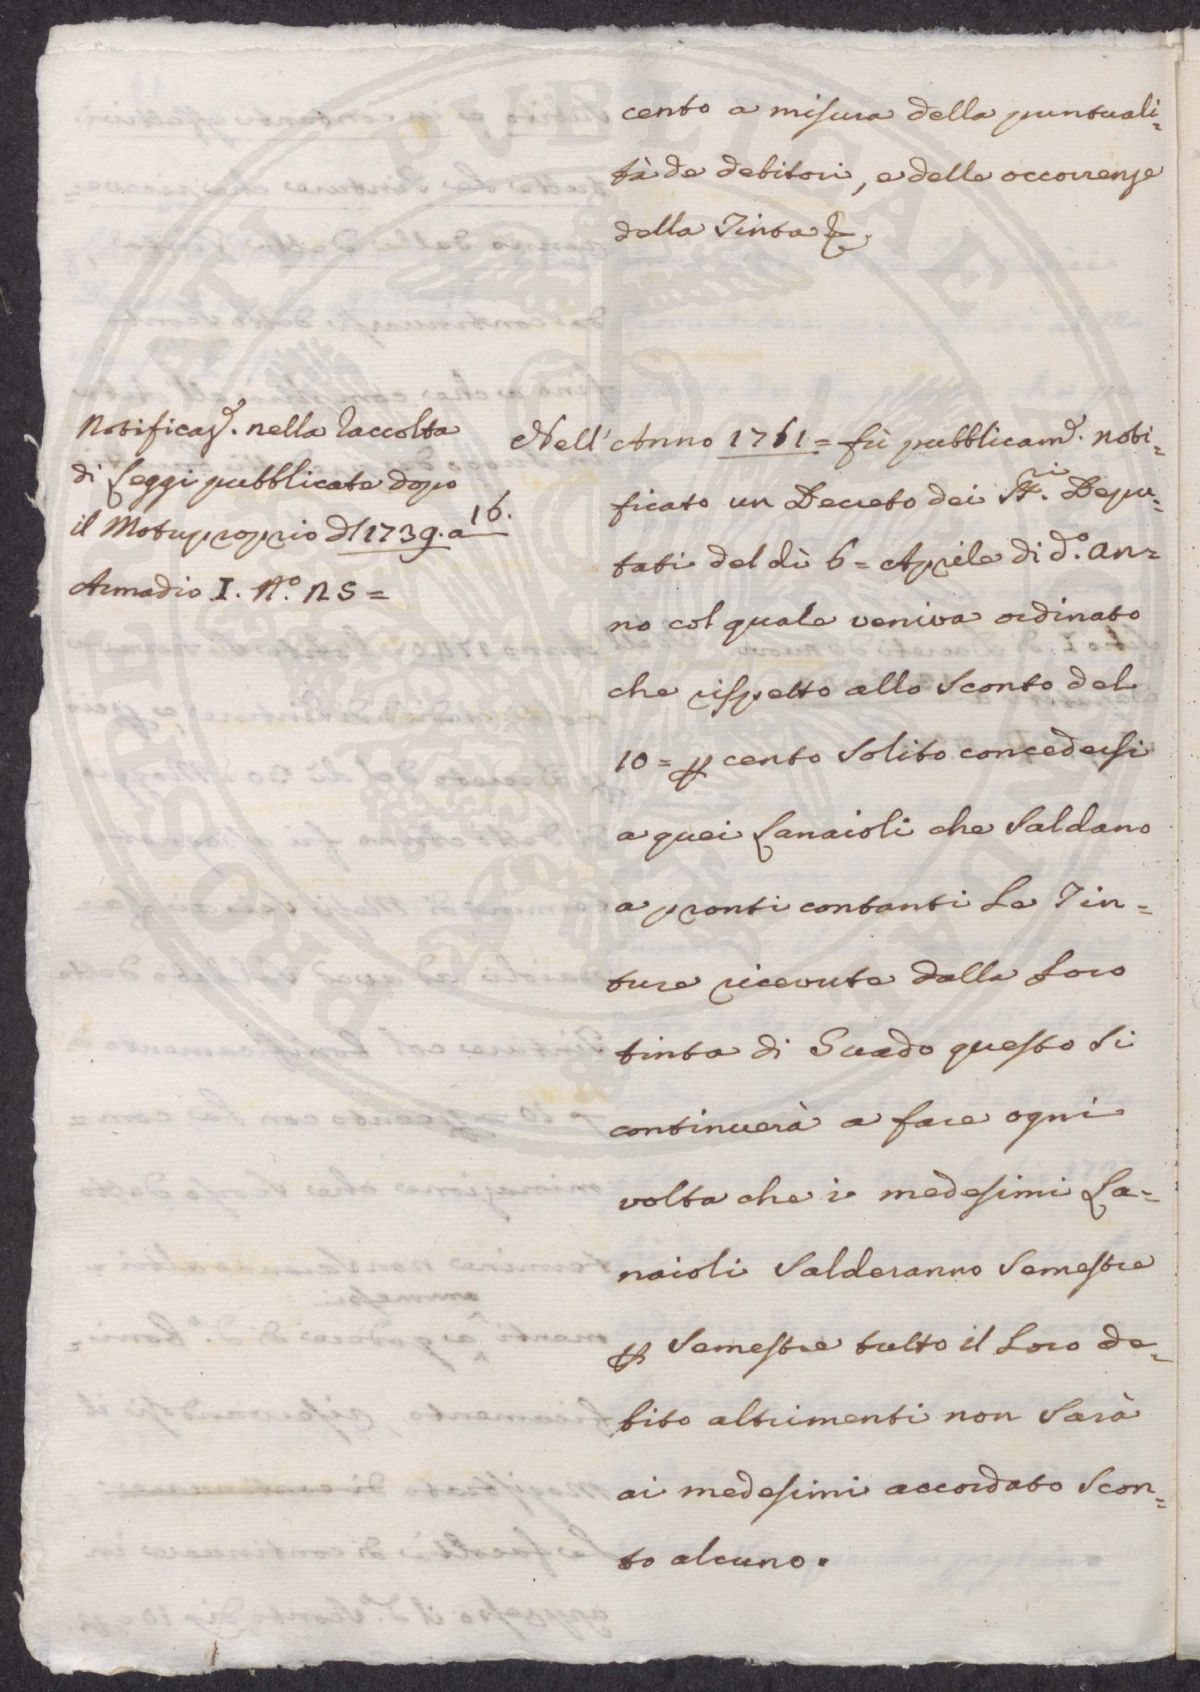 cento a misura della puntuali=
tà de debitori, e delle occorrenze
della Tinta &.
Notificaz.e nella Raccolta
di Leggi pubblicate dopo
il Motuproprio del 1739. a 16.
Armadio I. N.o 25=
Nell' Anno 1761= fù pubblicam.e noti=
ficato un Decreto dei SS.ri Depu=
tati del dì 6= Aprile di d.o An=
no col quale veniva ordinato
che rispetto allo Sconto del
10= p cento Solito concedersi
a quei Lanaioli che Saldano
a pronti contanti Le Tin=
ture ricevute dalla Loro
tinta di Guado questo Si
continuerà a fare ogni
volta che i medesimi La=
naioli Salderanno Semestre
p Semestre tutto il Loro de=
bito altrimenti non Sarà
ai medesimi accordato Scon=
to alcuno.